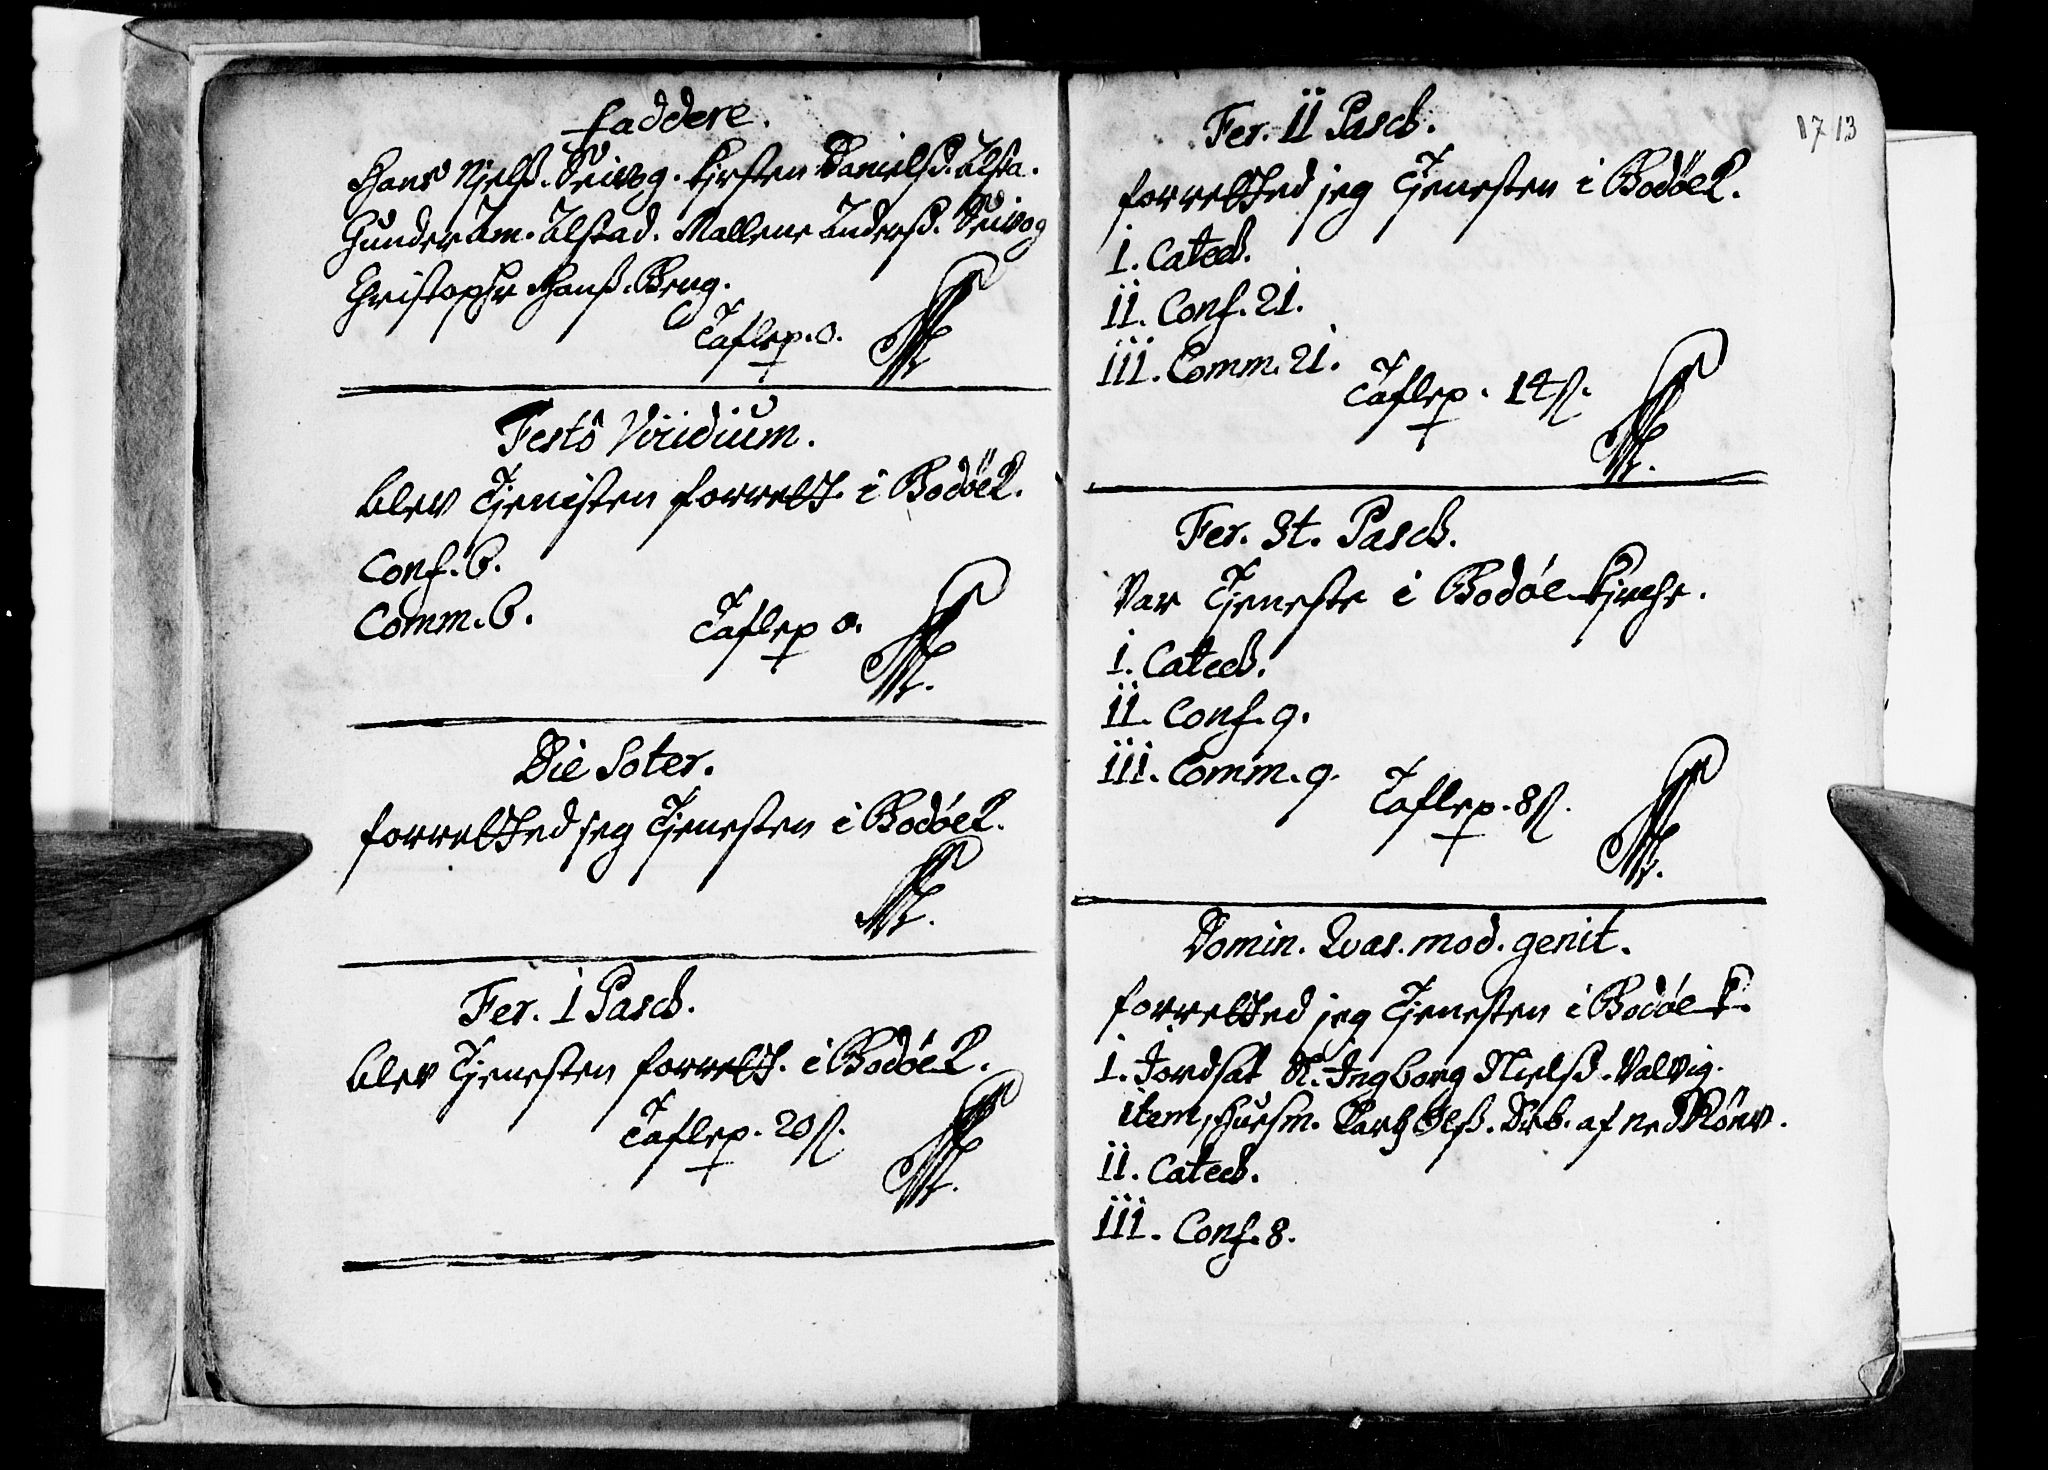 faddere.
Hans Njelß. Seivog. Kirsten Danielsd. Alsta.
Gunder Am. Alstad. Mallene Andersd. Seivog
Christopher Hanß. Berg.
Taflep. 0.
Festô Viridium.
blev Tjenisten forrett. i Bodöe K.
Conf. 6.
Comm. 6.
Taflep 0.
Die Soter.
forretted jeg Tjenesten i Bodöe K.
Fer. I Pasch.
blev Tjenesten forrett. i Bodöe K.
Taflep. 20 ß.
1713
Fer. II Pasch.
forretted jeg Tjenesten i Bodöe K.
I. Catech.
II. Conf. 21.
III. Comm. 21.
Taflep. 14 ß.
Fer. 3t. Pasch.
Var Tjeneste i Bodöe Kirche.
I. Catech.
II. Conf. 9.
III. Comm. 9.
Taflep. 8 ß.
Domin. Qvas. mod. genit.
forretted jeg Tjenesten i Bodöe K.
I. Jordsat K. Ingborg Nielsd. Valvig.
item Huusm. Olß. af ned Rönv.
II. Catech.
III. Conf. 8.